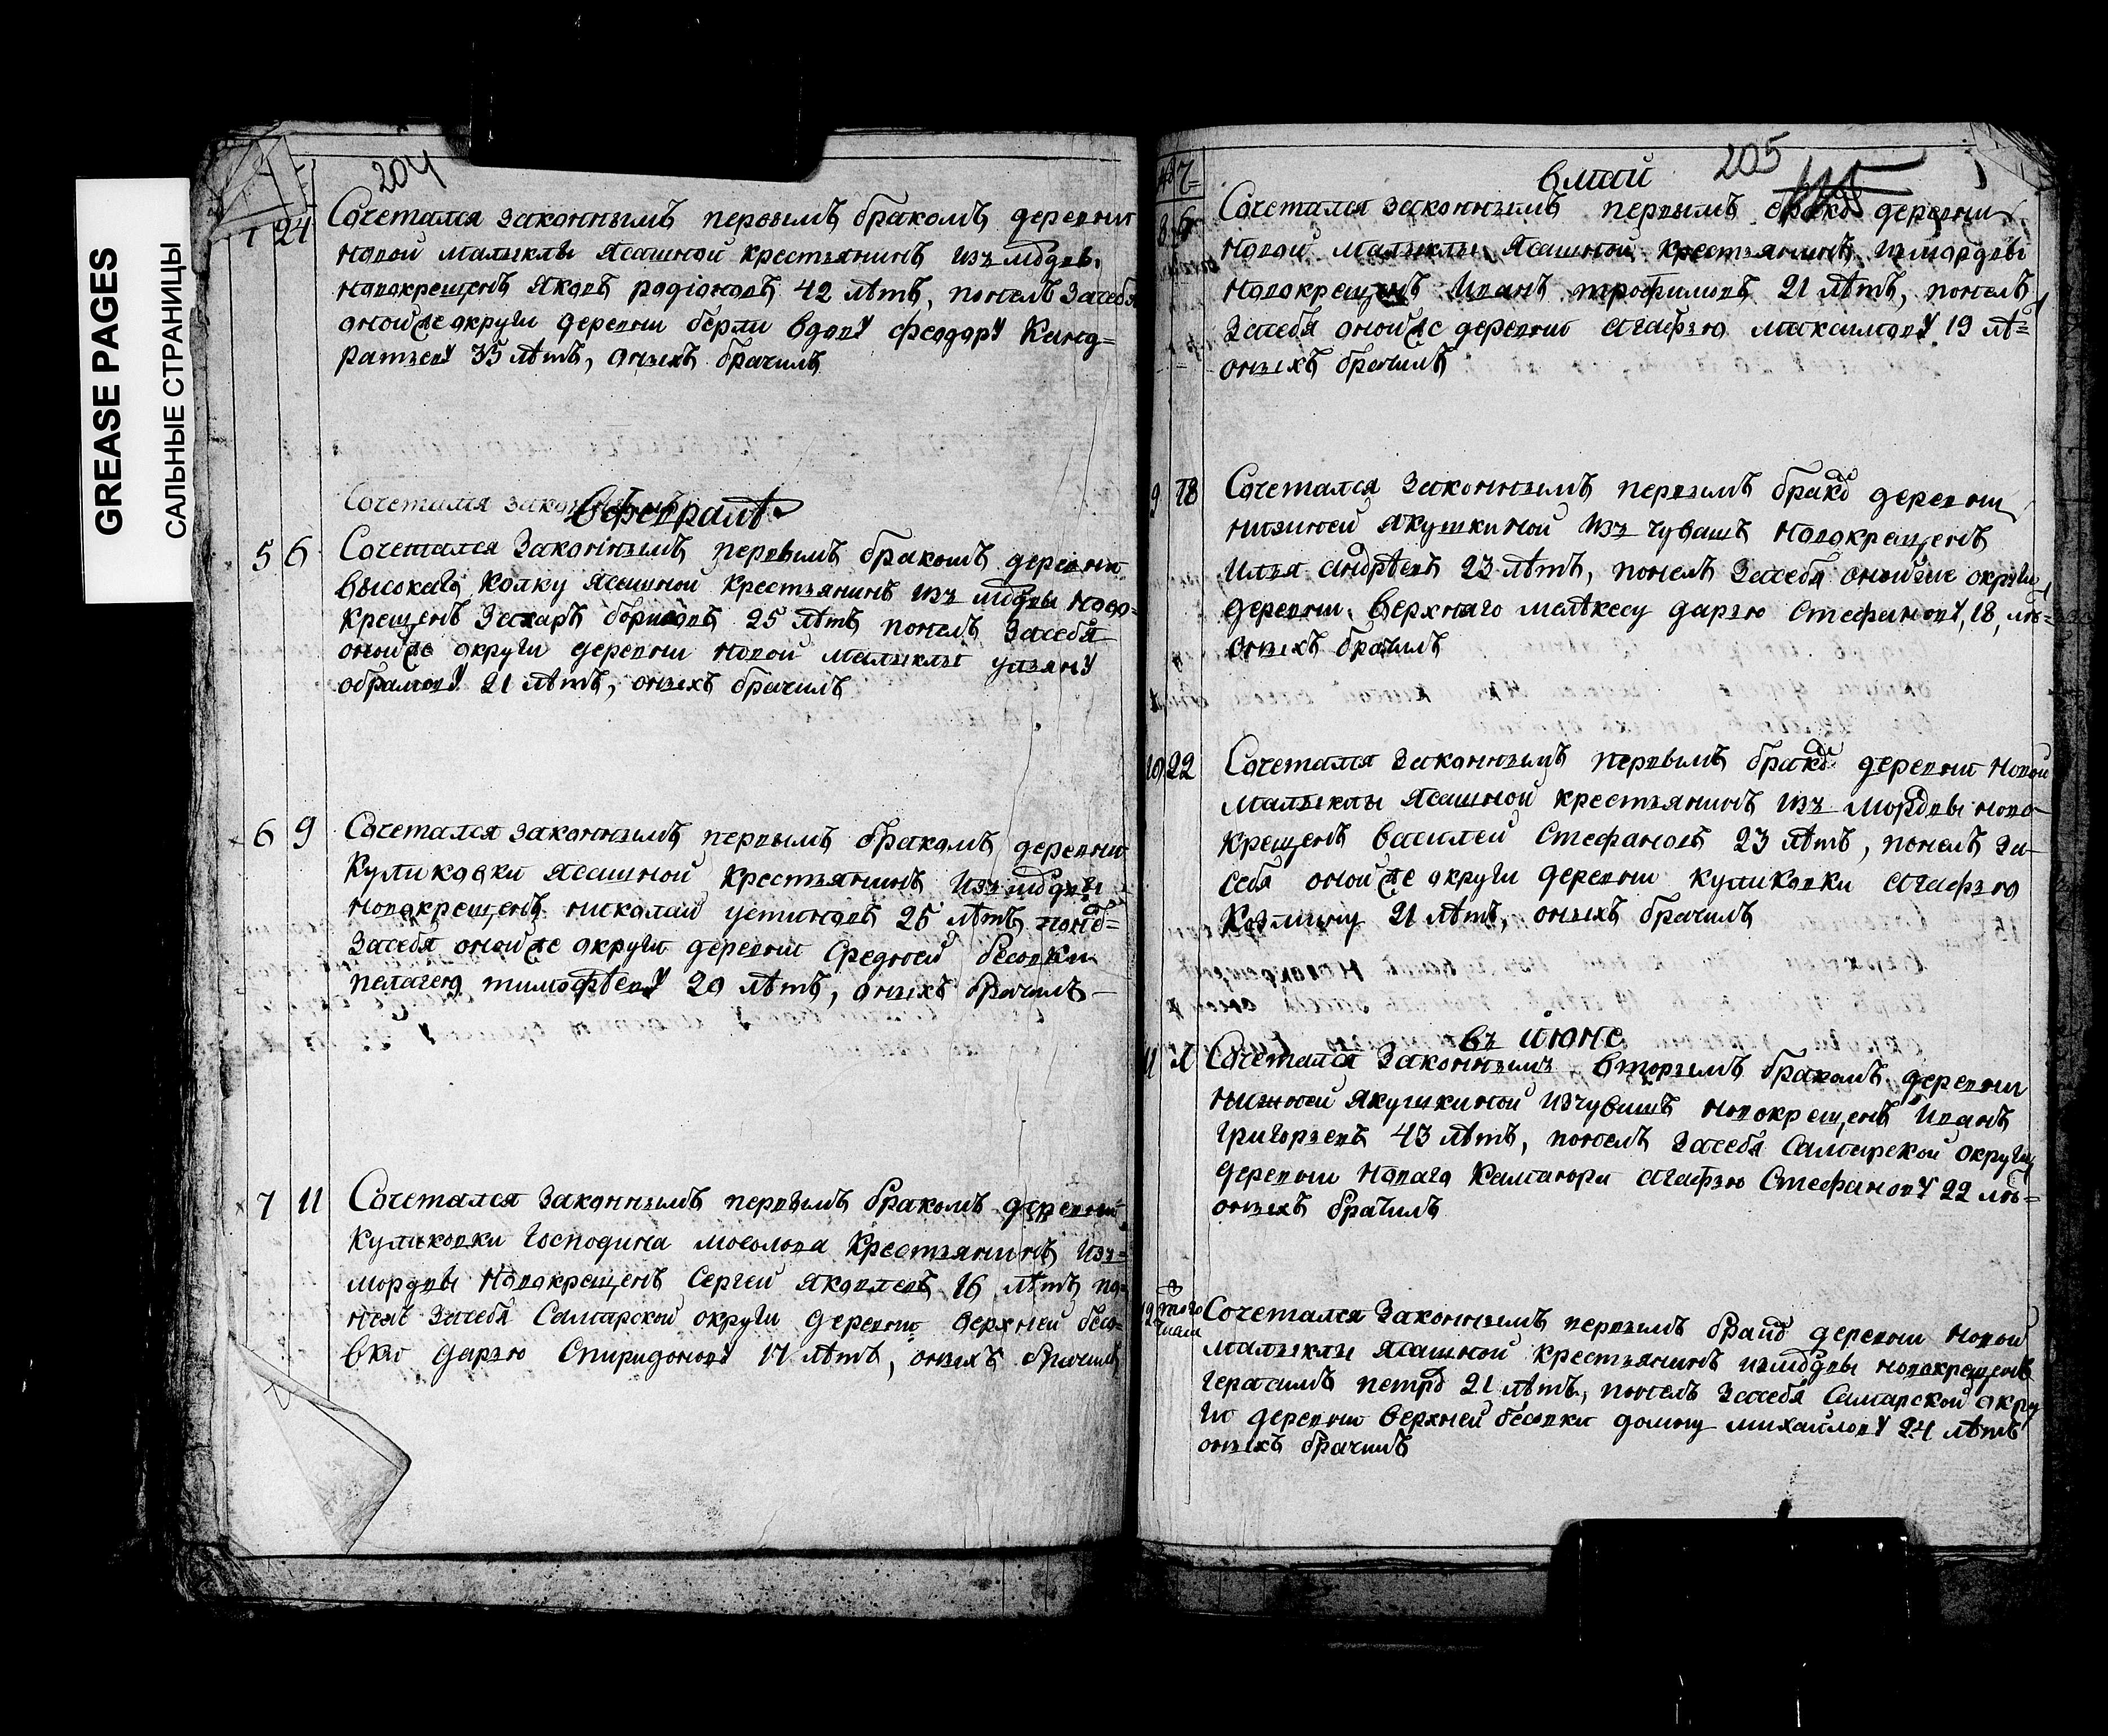 GREASE PAGES
САЛЬНЫЕ СТРАНИЦЫ
204
24 Сочетался законнымъ первымъ бракомъ деревни
новой малыклы ясашной крестьянинъ изъ мордвы
новокрещенъ яковъ родіоновъ 42 лѣтъ, понелъ засебя
оной же округи деревни берли вдову феодору Канд=
ратьеву 35 лѣтъ, оныхъ брачилъ
Сочетался закон
Вфевралѣ
5 6 Сочетался законнымъ первымъ бракомъ деревни
высокаго колку ясашной крестьянинъ изъ мордвы ново=
крещенъ Захаръ борисовъ 25 лѣтъ понелъ засебя
оной же округи деревни новой малыклы ульяну
обрамову 21 лѣтъ, оныхъ брачилъ
6 9 Сочетался законнымъ первымъ бракомъ деревни
куликовки ясашной крестьянинъ изъ мордвы
новокрещенъ николай устиновъ 25 лѣтъ понелъ
засебя оной же округи деревни средней бесовки
пелагею тимофѣеву 20 лѣтъ, оныхъ брачилъ
7 11 Сочетался законнымъ первымъ бракомъ деревни
куликовки господина мосолова крестьянинъ изъ=
мордвы новокрещенъ Сергей яковлевъ 16 лѣтъ по=
нелъ засебя Самарской округи деревни верхней бесо=
вки дарью Спиридонову 17 лѣтъ, оныхъ брачилъ
вмаии
205
8 6 Сочетался законнымъ первымъ брако деревни
новой малыклы ясашной крестьянинъ измордвы
новокрещенъ Иванъ трофимовъ 21 лѣтъ, понелъ
засебя оной же деревни агафью максимову 19 лѣ=
оныхъ брачилъ
9 18 Сочетался законнымъ первымъ брако деревни
нижней якушкиной изъ чувашъ новокрещенъ
илья андрѣевъ 23 лѣтъ, понелъ засебя онойже округи
деревни верхняго мелѣкесу дарью Стефанову, 18, лѣ=
оныхъ брачилъ
10 22 Сочетался законнымъ первымъ брако деревни новой
малыклы ясашной крестьянинъ изъ мордвы ново
крещенъ василей Стефановъ 23 лѣтъ, понелъ за
себя оной же округи деревни куликовки агафью
козмину 21 лѣтъ, оныхъ брачилъ
въ июне
11 Сочетался законнымъ вторымъ бракомъ деревни
нижней якушкиной изчувашъ новокрещенъ Иванъ
григорьевъ 43 лѣтъ, понелъ засебя Самарской округи
деревни новаго Камаюри агафью Стефанову 22 лѣ=
оныхъ брачилъ
12 того числа Сочетался законнымъ первымъ брако деревни новой
малыклы ясашной крестьянинъ измордвы новокрещенъ
герасимъ петро 21 лѣтъ, понелъ засебя Самарской окру
ги деревни верхней бесовки домну михайлову 24 лѣтъ
оныхъ брачилъ